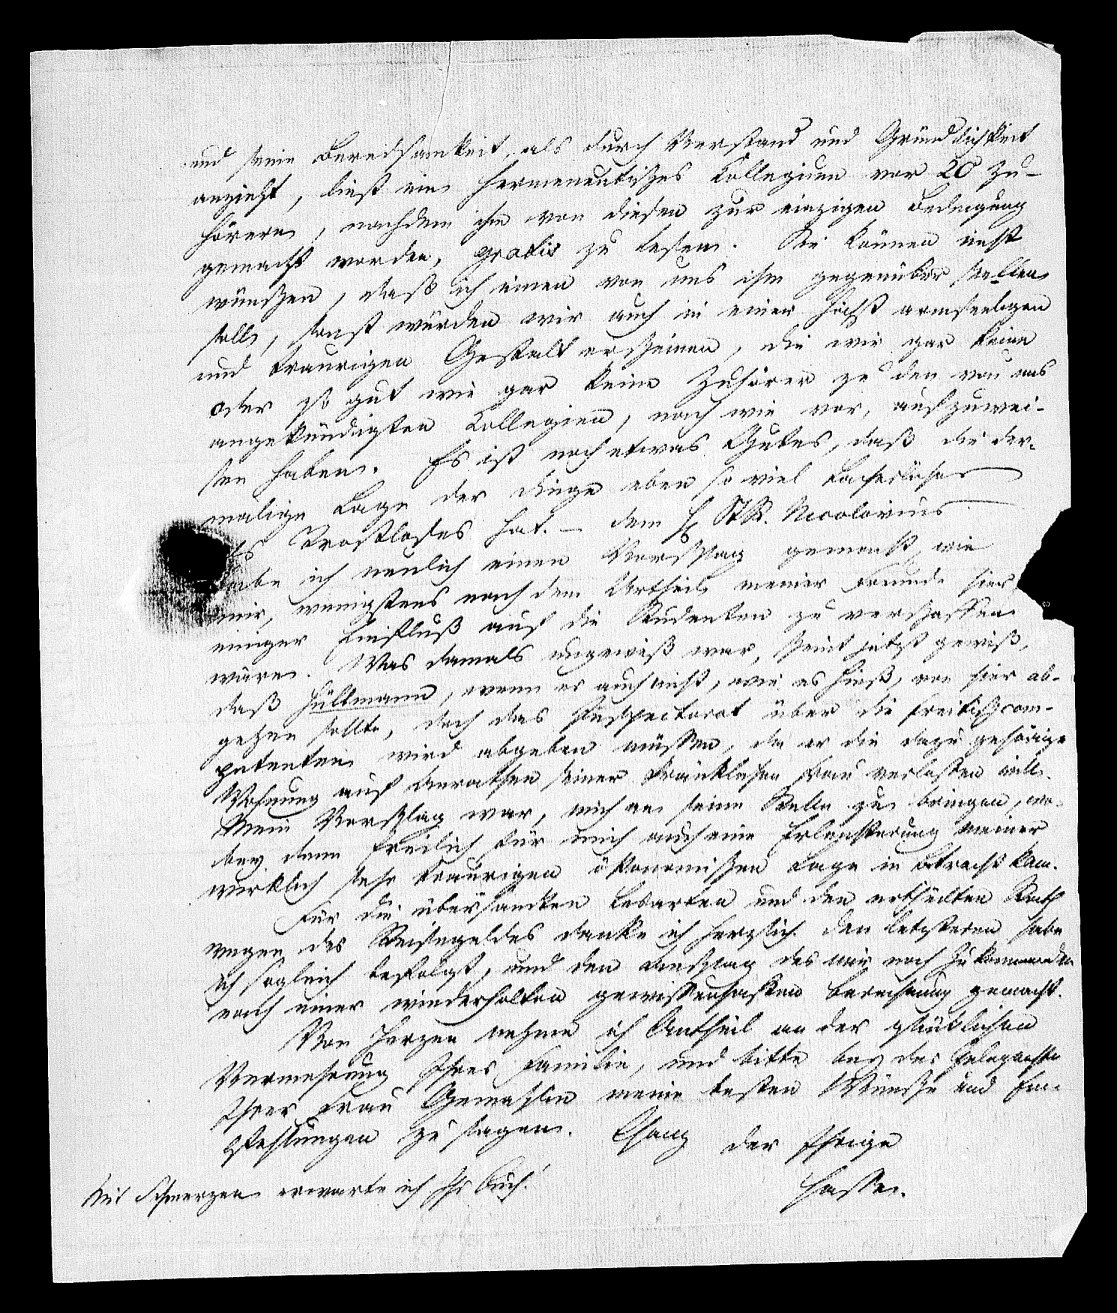 und seine Beredsamkeit, als durch Verstand und Gründlichkeit
anzieht, ließt ein Hermeneutisches Collegium vor 20 Zu-
hörern, nachdem ihm von diesen zur einzigen Bedingung
gemacht worden, gratis zu lesen. Sie können nicht
wünschen, daß ich einen von uns ihm gegenüber stellen
soll, sonst würden wir auch in einer höchst armseeligen
und traurigen Gestalt erscheinen, die wir gar keine
oder so gut wie gar keine Zuhörer zu den von uns
angekündigten Collegien, nach wie vor, aufzuwei-
sen haben. Es ist noch etwas Gutes, daß die der-
malige Lage der Dinge eben so viel Lächerliches
als Trostloses hat. — Dem H StR. Nicolovius
habe ich neulich einen Vorschlag gemacht, wie
mir, wenigstens nach dem Urtheile meiner Freunde hier
einiger Einfluß auf die Studenten zu verschaffen
wäre. Was damals ungewiß war, scheint jetzt gewiß,
daß Hüllmann, wenn er auch nicht, wie es hieß, von hier ab-
gehen sollte, doch das Inspectorat über die Freitischcom-
petenten wird abgeben müssen, da er die dazu gehörige
Wohnung auf Anrathen seiner kränklichen Frau verlassen will.
Mein Vorschlag war, mich an seine Stelle zu bringen, wo-
bey denn freilich für mich auch eine Erleichterung meiner
wirklich sehr traurigen ökonomischen Lage in Betracht kam.
Für die übersandten Lesarten und den ertheilten Rath
wegen des Reisegeldes danke ich herzlich. Den letzteren habe
ich sogleich befolgt, und den Anschlag des mir noch Zukommenden
nach einer wiederholten gewissenhaften Berechnung gemacht.
Von Herzen nehme ich Antheil an der glücklichen
Vermehrung Ihres Familie, und bitte bey der Gelegenheit
Ihrer Frau Gemahlin meine besten Wünsche und Em-
pfehlungen zu sagen. Ganz der Ihrige
Mit Schmerzen erwarte ich Ihr Buch!